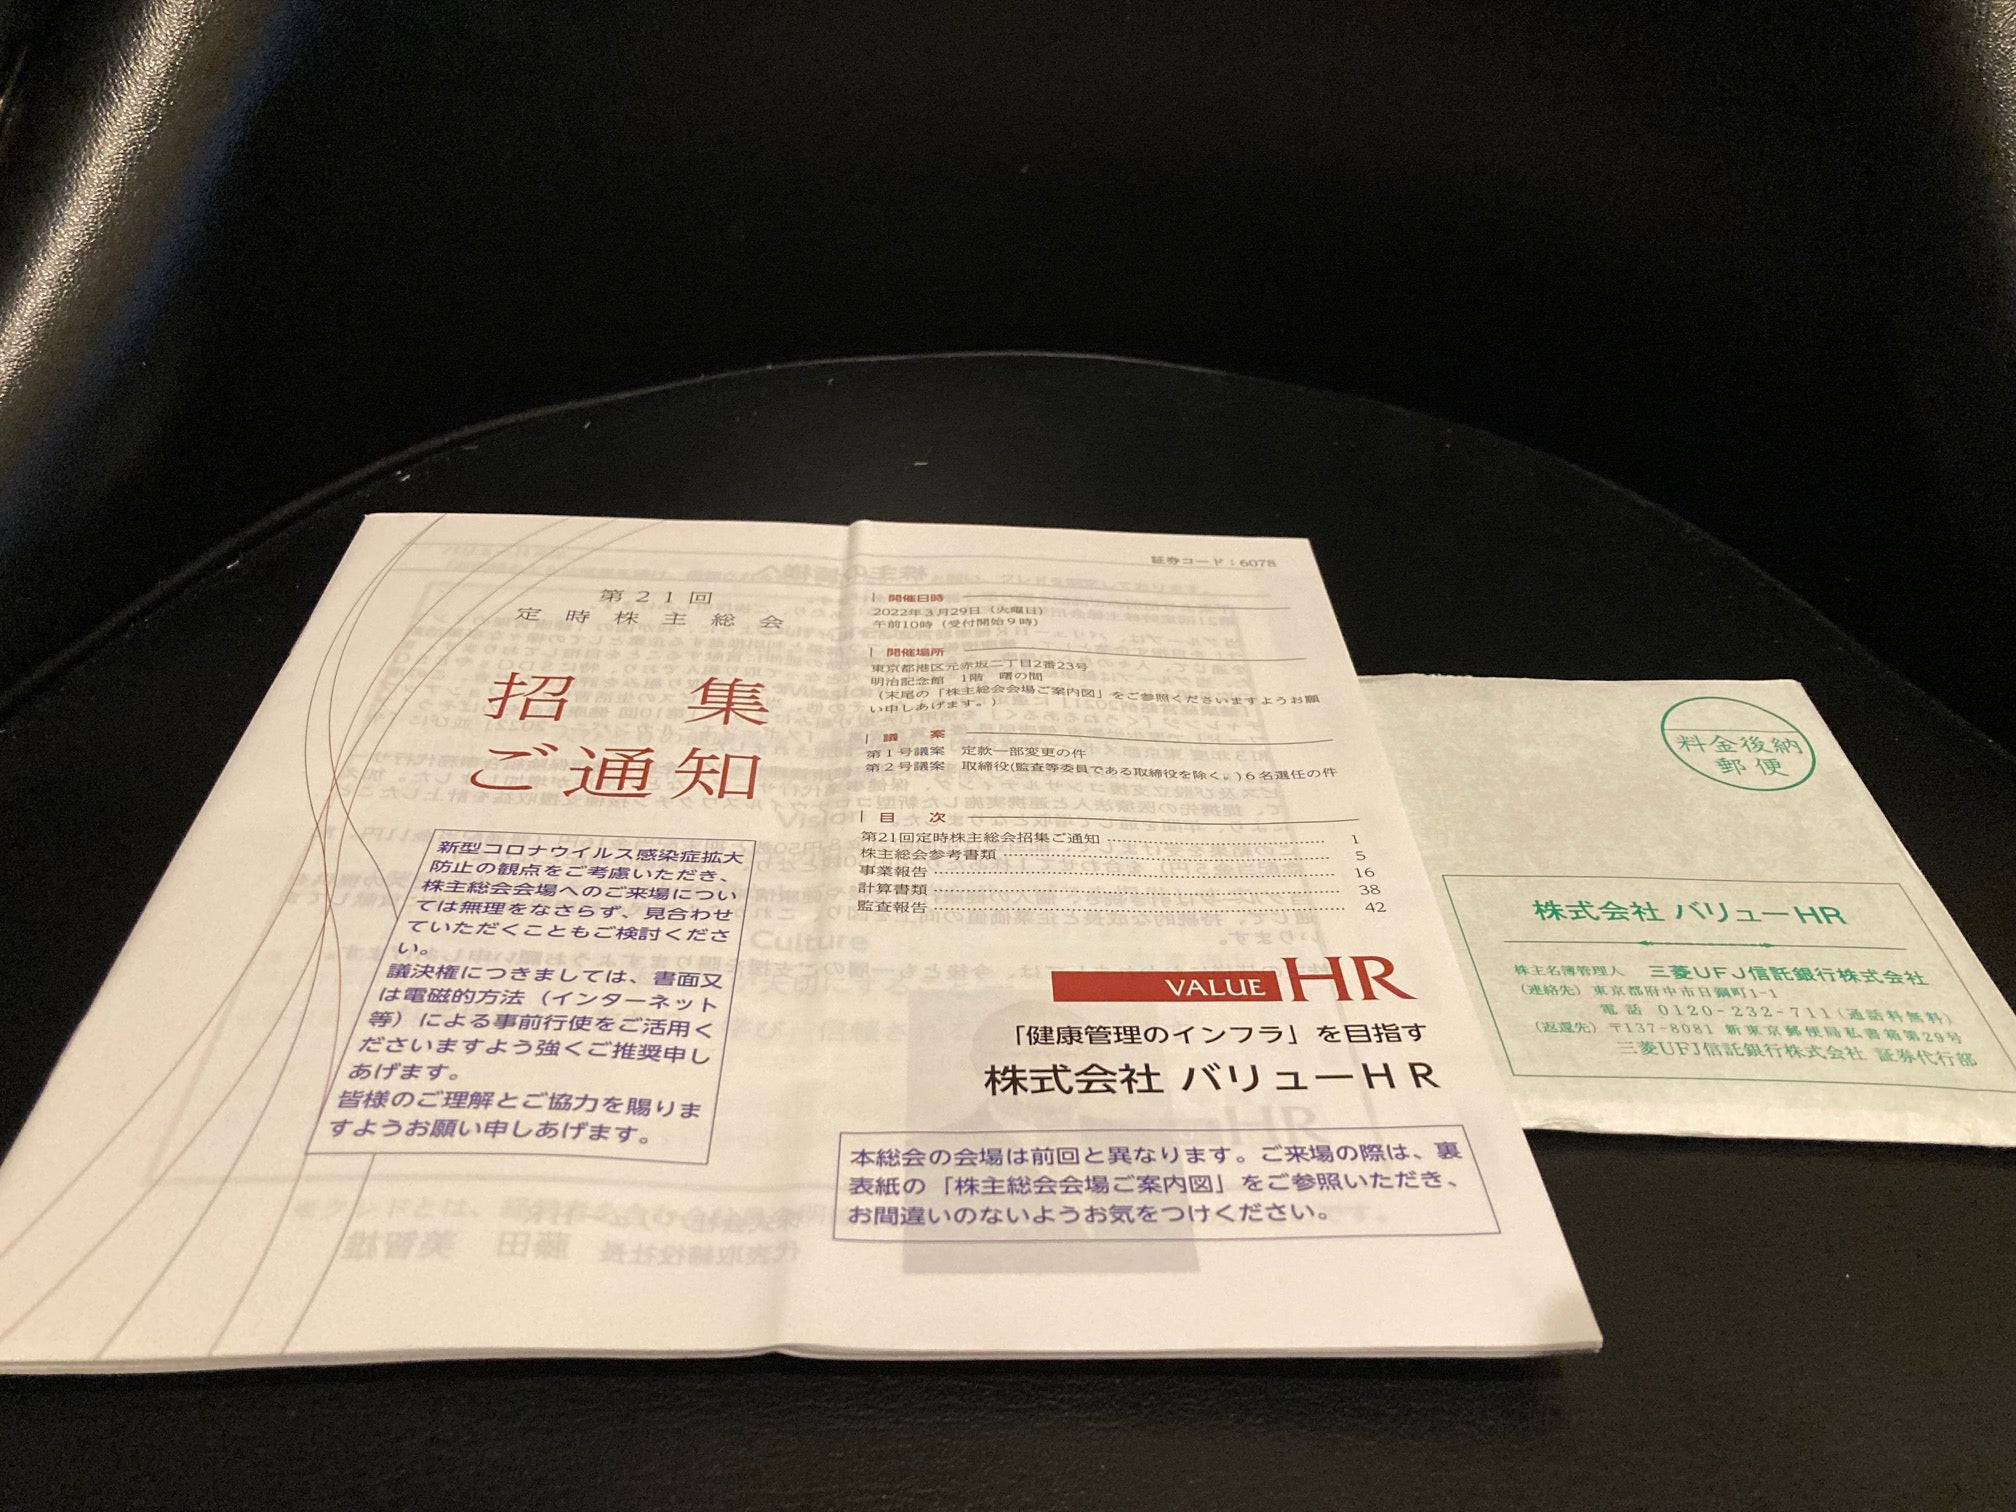 証券コード：6078
第21回
定時株主総会
招集
ご通知
新型コロナウイルス感染症拡大
防止の観点をご考慮いただき、
株主総会会場へのご来場につい
ては無理をなさらず、見合わせ
ていただくこともご検討くださ
い。
議決権につきましては、書面又
は電磁的方法（インターネット
等）による事前行使をご活用く
ださいますよう強くご推奨申し
あげます。
皆様のご理解とご協力を賜りま
すようお願い申しあげます。
開催日時
2022年3月29日（火曜日）
午前10時（受付開始9時）
開催場所
東京都港区元赤坂二丁目2番23号
明治記念館　1階　曙の間
（末尾の「株主総会会場ご案内図」をご参照くださいますようお願
い申しあげます。）
議案
第1号議案　定款一部変更の件
第2号議案　取締役(監査等委員である取締役を除く。)6名選任の件
目次
第21回定時株主総会招集ご通知 …… 1
株主総会参考書類 …… 5
事業報告 …… 16
計算書類 …… 38
監査報告 …… 42
VALUE HR
「健康管理のインフラ」を目指す
株式会社 バリューＨＲ
本総会の会場は前回と異なります。ご来場の際は、裏
表紙の「株主総会会場ご案内図」をご参照いただき、
お間違いのないようお気をつけください。
料金後納
郵便
株式会社 バリューHR
株主名簿管理人　三菱UFJ信託銀行株式会社
（連絡先）東京都府中市日鋼町1-1
電話 0120-232-711（通話料無料）
（返還先）〒137-8081 新東京郵便局私書箱第29号
三菱UFJ信託銀行株式会社 証券代行部